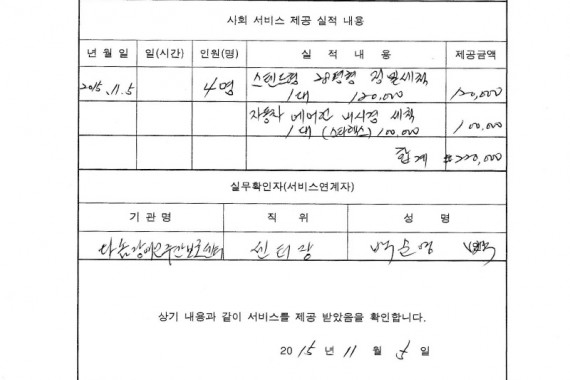 사회 서비스 제공 실적 내용
년 월 일 일(시간) 인원(명) 실 적 내 용 제공금액
2015.11.5 4명 스텐드형 28평형 정밀세척 120,000
1대 120,000
자동차 에어컨 내시경 세척 100,000
1대 (스타렉스) 100,000
합계 ₩220,000
실무확인자(서비스연계자)
기 관 명 직 위 성 명
센터장
상기 내용과 같이 서비스를 제공 받았음을 확인합니다.
2015 년 11 월 5 일